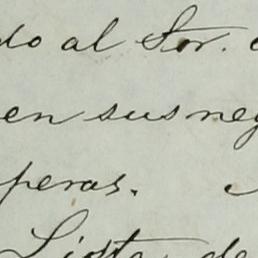 do al Sor.
en sus neg
peras.
Lista de